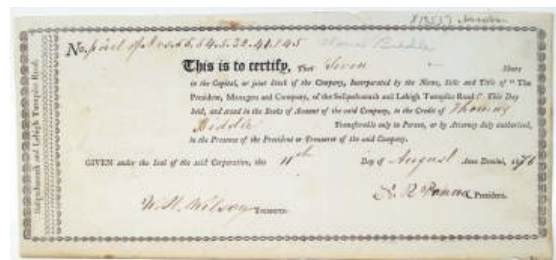 No.
This is to certify, That Seven Share
in the Capital, or joint Stock of the Company, Incorporated by the Name, Stile and Title of "The
President, Managers and Company, of the Susquehannah and Lehigh Turnpike Road." This Day
held, and stand in the Books of Account of the said Company, to the Credit of Thomas
Biddle Transferable only in Person, or by Attorney duly authorized,
in the Presence of the President or Treasurer of the said Company.
GIVEN under the Seal of the said Corporation, this 11th Day of August Anno Domini, 18
W. H. Wilson Treasurer.
President.
Susquehannah and Lehigh Turnpike Road.